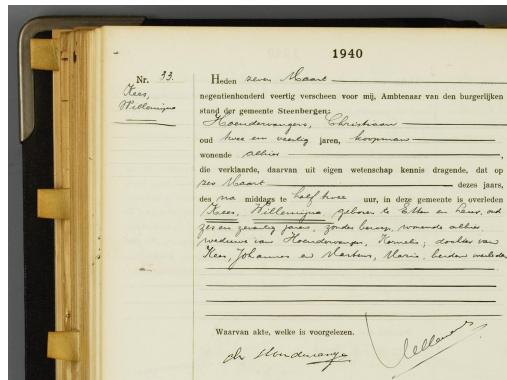 1940
Nr. 33.
Kees,
Willemijna
Heden zeven Maart
negentienhonderd veertig verscheen voor mij, Ambtenaar van den burgerlijken
stand der gemeente Steenbergen:
Hoendervangers, Christiaan
oud twee en veertig jaren, koopman
wonende alhier,
die verklaarde, daarvan uit eigen wetenschap kennis dragende, dat op
zes Maart dezes jaars,
des na middags te half twee uur, in deze gemeente is overleden
Kees, Willemijna, geboren te Etten en Leur, oud
zes en zeventig jaren, zonder beroep, wonende alhier,
weduwe van Hoendervangers, Kornelis; dochter van
Kees, Johannes en Martens, Maria, beiden overleden
Waarvan akte, welke is voorgelezen.